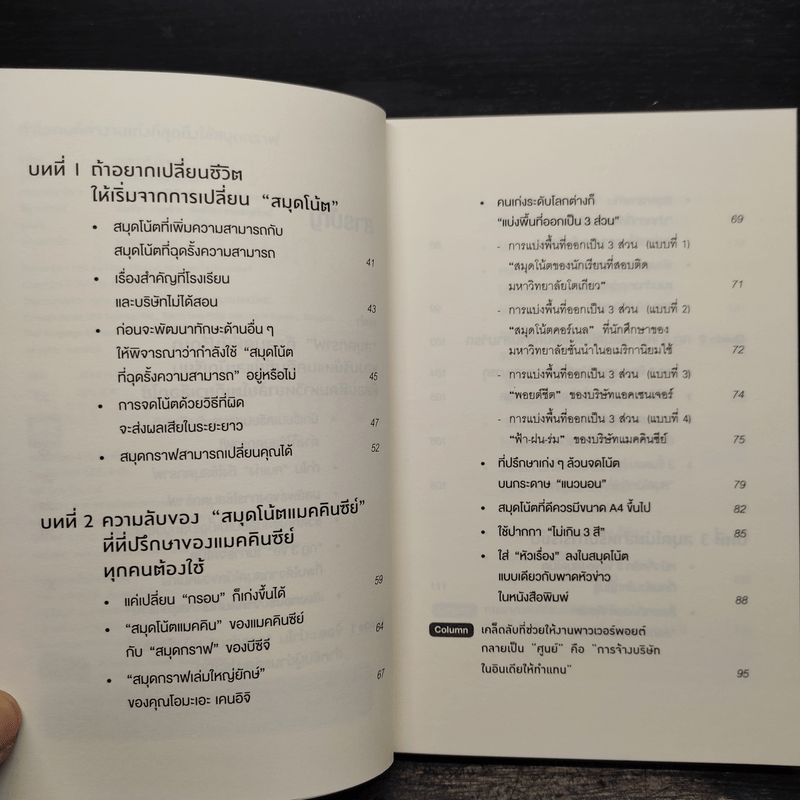 บทที่ 1 ถ้าอยากเปลี่ยนชีวิต
ให้เริ่มจากการเปลี่ยน “สมุดโน้ต”
• สมุดโน้ตที่เพิ่มความสามารถกับ
สมุดโน้ตที่ฉุดรั้งความสามารถ 41
• เรื่องสำคัญที่โรงเรียน
และบริษัทไม่ได้สอน 43
• ก่อนจะพัฒนาทักษะด้านอื่น ๆ
ให้พิจารณาว่ากำลังใช้ “สมุดโน้ต
ที่ฉุดรั้งความสามารถ” อยู่หรือไม่ 45
• การจดโน้ตด้วยวิธีที่ผิด
จะส่งผลเสียในระยะยาว 47
• สมุดกราฟสามารถเปลี่ยนคุณได้ 52
บทที่ 2 ความลับของ “สมุดโน้ตแมคคินซีย์”
ที่ที่ปรึกษาของแมคคินซีย์
ทุกคนต้องใช้
• แค่เปลี่ยน “กรอบ” ก็เก่งขึ้นได้ 59
• “สมุดโน้ตแมคคิน” ของแมคคินซีย์
กับ “สมุดกราฟ” ของบีซีจี 64
• “สมุดกราฟเล่มใหญ่ยักษ์”
ของคุณโอมะเอะ เคนอิจิ 67
• คนเก่งระดับโลกต่างก็
“แบ่งพื้นที่ออกเป็น 3 ส่วน” 69
- การแบ่งพื้นที่ออกเป็น 3 ส่วน (แบบที่ 1)
“สมุดโน้ตของนักเรียนที่สอบติด
มหาวิทยาลัยโตเกียว” 71
- การแบ่งพื้นที่ออกเป็น 3 ส่วน (แบบที่ 2)
“สมุดโน้ตคอร์เนล” ที่นักศึกษาของ
มหาวิทยาลัยชั้นนำในอเมริกานิยมใช้ 72
- การแบ่งพื้นที่ออกเป็น 3 ส่วน (แบบที่ 3)
“พอยต์ชีต” ของบริษัทแอคเซนเจอร์ 74
- การแบ่งพื้นที่ออกเป็น 3 ส่วน (แบบที่ 4)
“ฟ้า-ฝน-ร่ม” ของบริษัทแมคคินซีย์ 75
• ที่ปรึกษาเก่ง ๆ ล้วนจดโน้ต
บนกระดาษ “แนวนอน” 79
• สมุดโน้ตที่ดีควรมีขนาด A4 ขึ้นไป 82
• ใช้ปากกา “ไม่เกิน 3 สี” 85
• ใส่ “หัวเรื่อง” ลงในสมุดโน้ต
แบบเดียวกับพาดหัวข่าว
ในหนังสือพิมพ์ 88
Column เคล็ดลับที่ช่วยให้งานพาวเวอร์พอยต์
กลายเป็น “ศูนย์” คือ “การจ้างบริษัท
ในอินเดียให้ทำแทน” 95